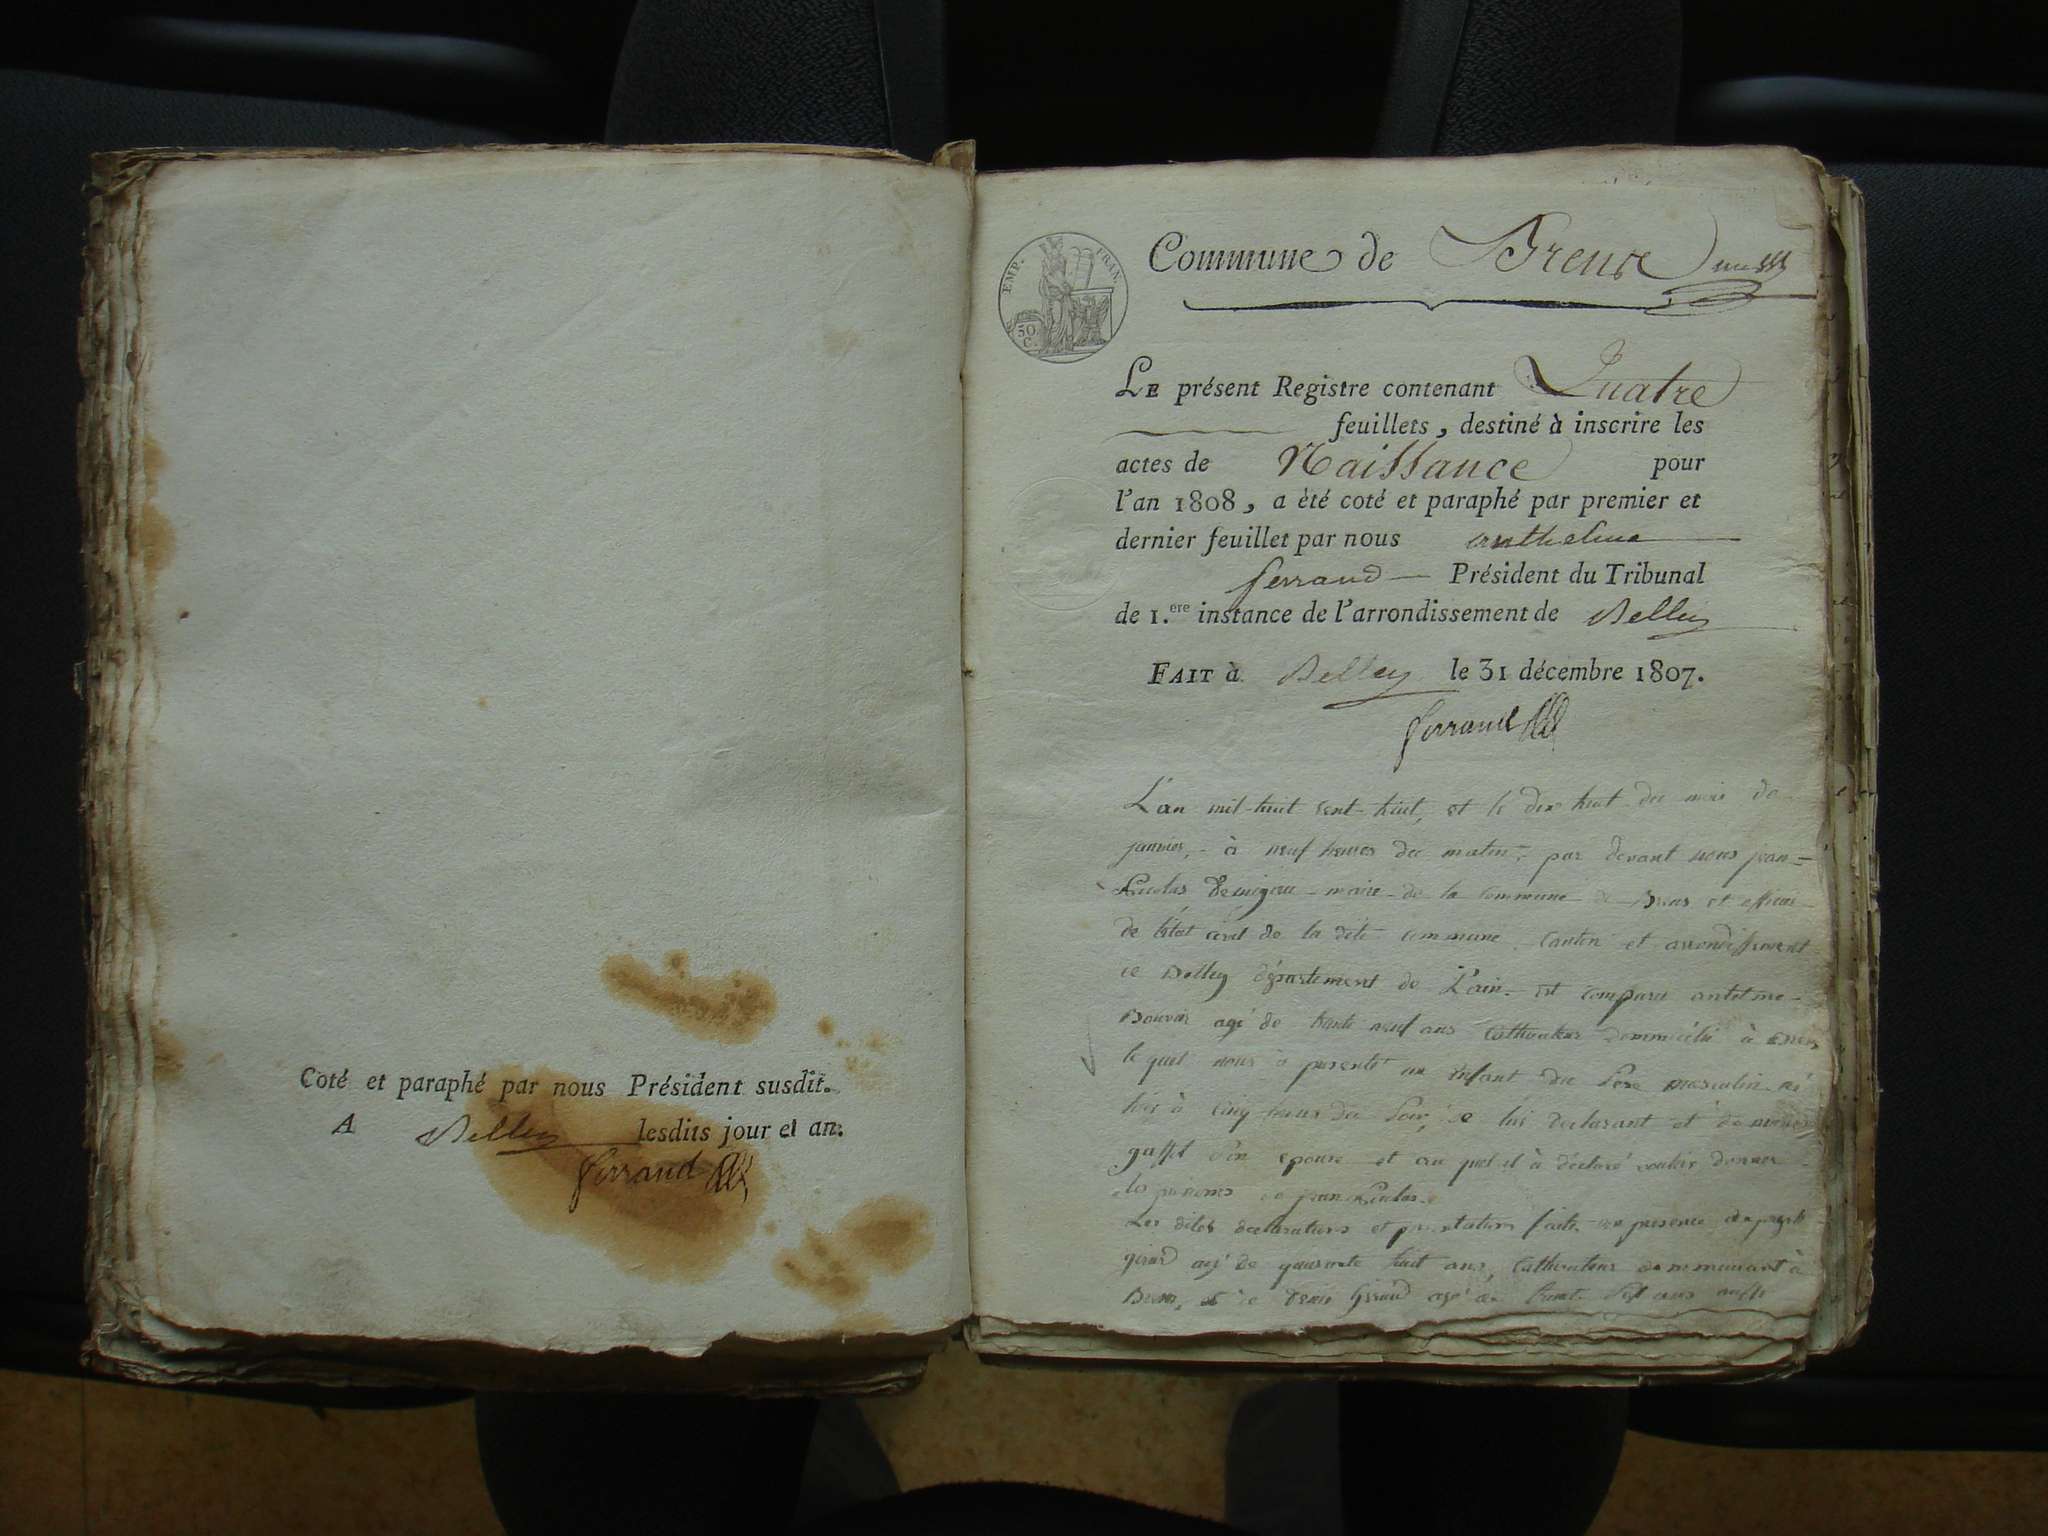 Coté et paraphé par nous Président susdit.
A Belley lesdits jour et an.
Ferrand
EMP. FRAN.
50 C.
Commune de Brens
Le présent Registre contenant Quatre
feuillets, destiné à inscrire les
actes de Naissance pour
l'an 1808, a été coté et paraphé par premier et
dernier feuillet par nous anthelme
ferrand Président du Tribunal
de 1.ere instance de l'arrondissement de Belley
FAIT à Belley le 31 décembre 1807.
Ferrand
L'an mil huit cent huit, et le dix huit du mois de
janvier, à neuf heures du matin, par devant nous jean
maire de la commune de Brens et officier
de l'état civil de la dite commune canton et arrondissement
de Belley département de L'ain est comparu antelme
Bouvier agé de trente neuf ans cultivateur domicilié à Brens
le quel nous à presenté un enfant du sexe masculin né
hier à cinq heures du soir, de lui declarant et de
son epouse et au quel il à déclaré vouloir donner
les prénoms de jean
Les dites declarations et presentations faites en presence de
girard agé de quarante huit ans, cultivateur demeurant à
Brens, et de Girard agé de trente sept ans aussi